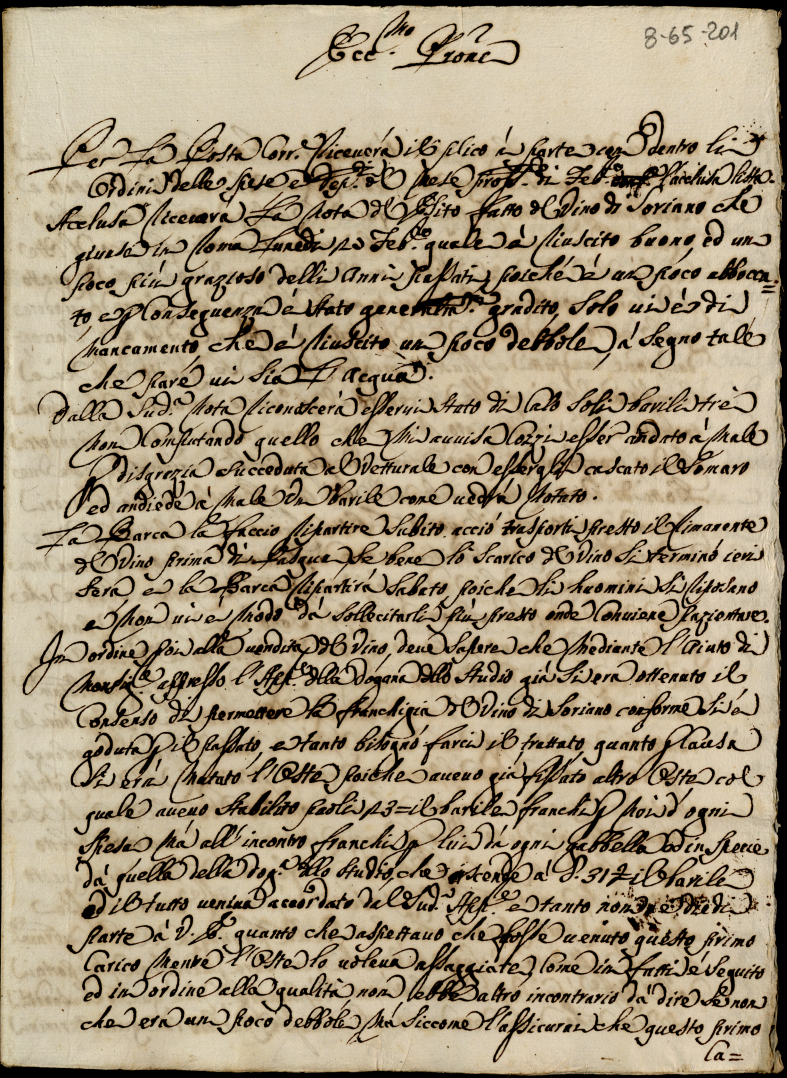 8-65-201
Ecc.mo Prone
Per la Posta Corr.e riceverà il plico à parte con dentro li
Ordini delle spese e del mese di Feb.
Acclusa riceverà la Nota del fatto del Vino di Soriano che
giunse in Roma Lunedì 20 Feb.o quale è riuscito buono, ed un
poco più grazioso delli Anni passati, poiché è un poco abbocca=
to, e p Conseguenza è stato general.te gradito, solo vi è di
mancamento, che è riuscito un poco debbole, à segno tale
che pare vi sia l'acqua.
Dalla Sud.a Nota riconoscerà esservi stato di calo soli barili trè
non computando quello che mi avvisa Cozzi esser andato à male
p disgrazia succeduta al Vetturale con essergli cascato il Somaro
ed andiede à male un barile come vedrà Notato.
La Barca la faccio ripartire subito acciò trasporti presto il rimanente
del Vino prima di Pasqua, se bene lo scarico del Vino si terminò ieri
sera e la Barca ripartirà Sabato, poiche li huomini si riposano
e non vi è modo da sollecitarli più presto onde conviene pazientare.
In ordine poi alla vendita del Vino, deve sapere che mediante l'aiuto di
Monsig.re appresso l'App.re della dogana dello Studio già si era ottenuto il
Consenso di permettere la franchigia del Vino di Soriano conforme si è
goduta p il passato, e tanto bisognò farci il trattato, quanto p causa
si era mutato l'Oste poiche avevo già fissato altro Oste col
quale avevo stabilito paoli 23= il barile franchi p Noi d'ogni
spesa mà all'incontro franchi p lui dà ogni gabbella ed in specie
dà quella della dog.a dello Studio, che ascende à b. 31½ il barile
ed il tutto veniva accordato dal Sud.o App.re e tanto non ne diedi
parte à V. E. quanto che aspettavo che fosse venuto questo primo
Carico mentre l'Oste lo voleva assaggiare, come in fatti è seguito
ed in ordine alla qualità non ebbe altro incontrario da dire se non
che era un poco debbole, mà siccome l'assicurai che questo primo
ca=